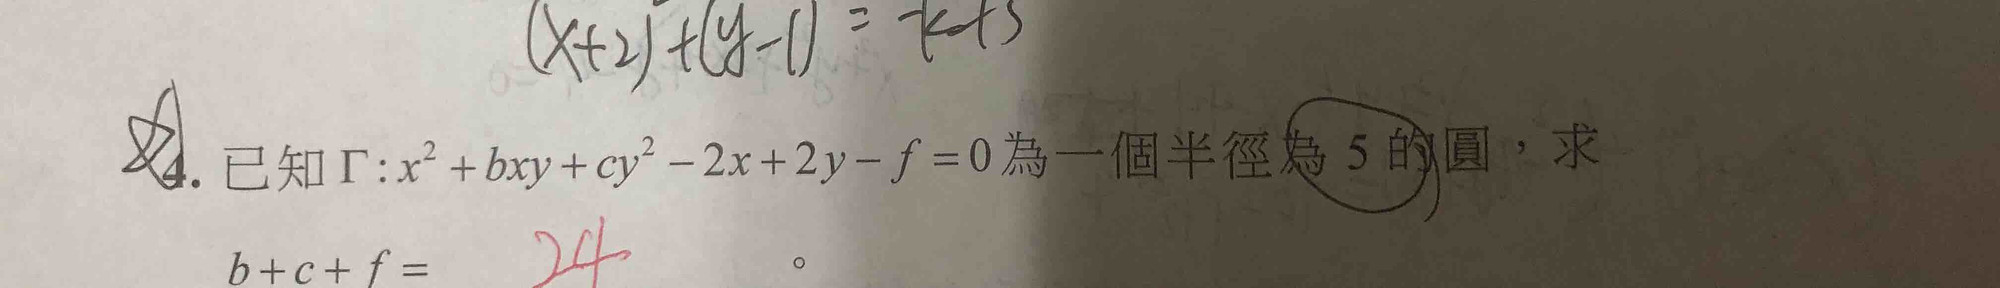 (x+2)²+(y-1)² = -k+5
4. 已知 Γ: x² + bxy + cy² − 2x + 2y − f = 0 為一個半徑為 5 的圓，求
b + c + f = 24 。